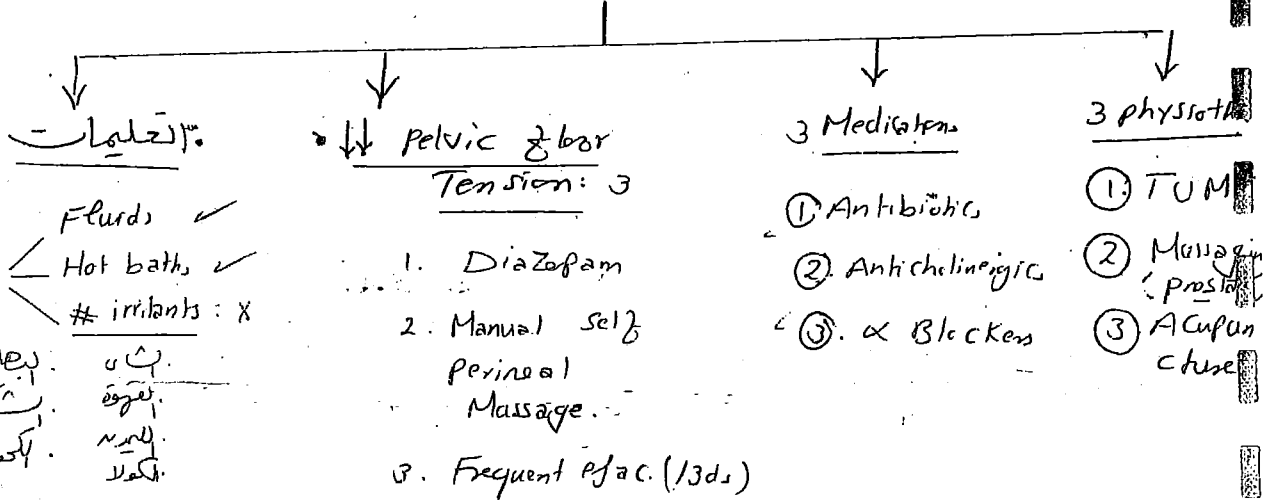 ٣ تعليمات.
Fluids ✓
Hot baths ✓
# irritants: x
الشاى.
القهوة.
الكولا.
• ↓↓ Pelvic floor
Tension: 3
1. Diazepam
2. Manual self
perineal
Massage.
3. Frequent ejac. (/3ds)
3 Medications
① Antibiotics
②. Anticholinergics
③. α Blockers
3 physioth
①. TUM
② Massagin
prost
③ Acupun
cture